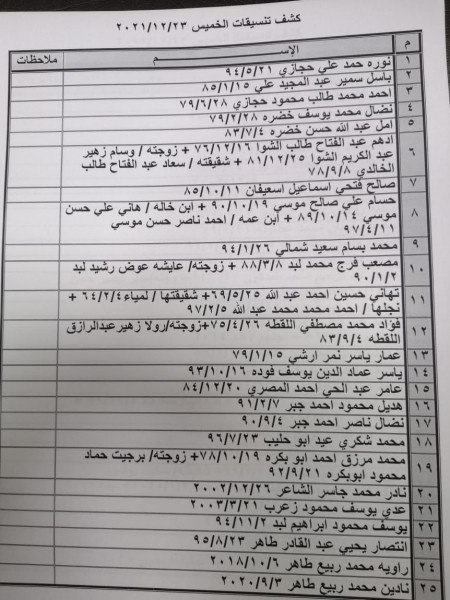 كشف تنسيقات الخميس ٢٠٢١/١٢/٢٣
م الإســـم ملاحظات
١ نوره حمد علي حجازي ٩٤/٥/٢١
٢ باسل سمير عبد المجيد علي ٨٥/١/١٥
٣ احمد محمد طالب محمود حجازي ٧٩/٦/٢٨
٤ نضال محمد يوسف خضره ٧٩/٢/٢٨
٥ امل عبد الله حسن خضره ٨٣/٧/٤
٦ ادهم عبد الفتاح طالب الشوا ٧٦/١٢/١٦ + زوجته / وسام زهير
عبد الكريم الشوا ٨١/١٢/٢٥ + شقيقته / سعاد عبد الفتاح طالب
الخالدي ٧٨/٩/٨
٧ صالح فتحي اسماعيل اسعيفان ٨٥/١٠/١١
٨ حسام علي صالح موسي ٩٠/١٠/١٩ + ابن خاله / هاني علي حسن
موسي ٨٩/١٠/١٤ + ابن عمه / احمد ناصر حسن موسي
٩٧/٤/١١
٩ محمد بسام سعيد شمالي ٩٤/١/٢٦
١٠ مصعب فرج محمد لبد ٨٨/٣/٨ + زوجته/ عايشه عوض رشيد لبد
٩٠/١/٢
١١ تهاني حسين احمد عبد الله ٦٩/٥/٢٥+ شقيقتها / لمياء٦٤/٢/٤ +
نجلها / احمد محمد محمد عبد الله ٩٧/٢/٥
١٢ فؤاد محمد مصطفي اللقطه ٧٥/٤/٢٦+زوجته/رولا زهيرعبدالرازق
اللقطه ٨٣/٩/٤
١٣ عمار ياسر نمر ارشي ٧٩/١/١٥
١٤ ياسر عماد الدين يوسف فوده ٩٣/١٠/١٦
١٥ عامر عبد الحي احمد المصري ٨٤/١٢/٢٠
١٦ هديل محمود احمد جبر ٩١/٢/٧
١٧ نضال ناصر احمد جبر ٩٠/٩/٤
١٨ محمد شكري عيد ابو حليب ٩٦/٧/٢٣
١٩ محمد مرزق احمد ابو بكره ٧٨/١٠/١٩+ زوجته/ برجيت حماد
محمود ابوبكره ٩٢/٩/٢١
٢٠ نادر محمد جاسر الشاعر ٢٠٠٢/١٢/٢٦
٢١ عدي يوسف محمود زعرب ٢٠٠٣/٣/٢١
٢٢ يوسف محمود ابراهيم لبد ٩٤/١١/٢
٢٣ انتصار يحيي عبد القادر طاهر ٩٥/٨/٢٣
٢٤ راويه محمد ربيع طاهر ٢٠١٨/١٠/٦
٢٥ نادين محمد ربيع طاهر ٢٠٢٠/٩/٣